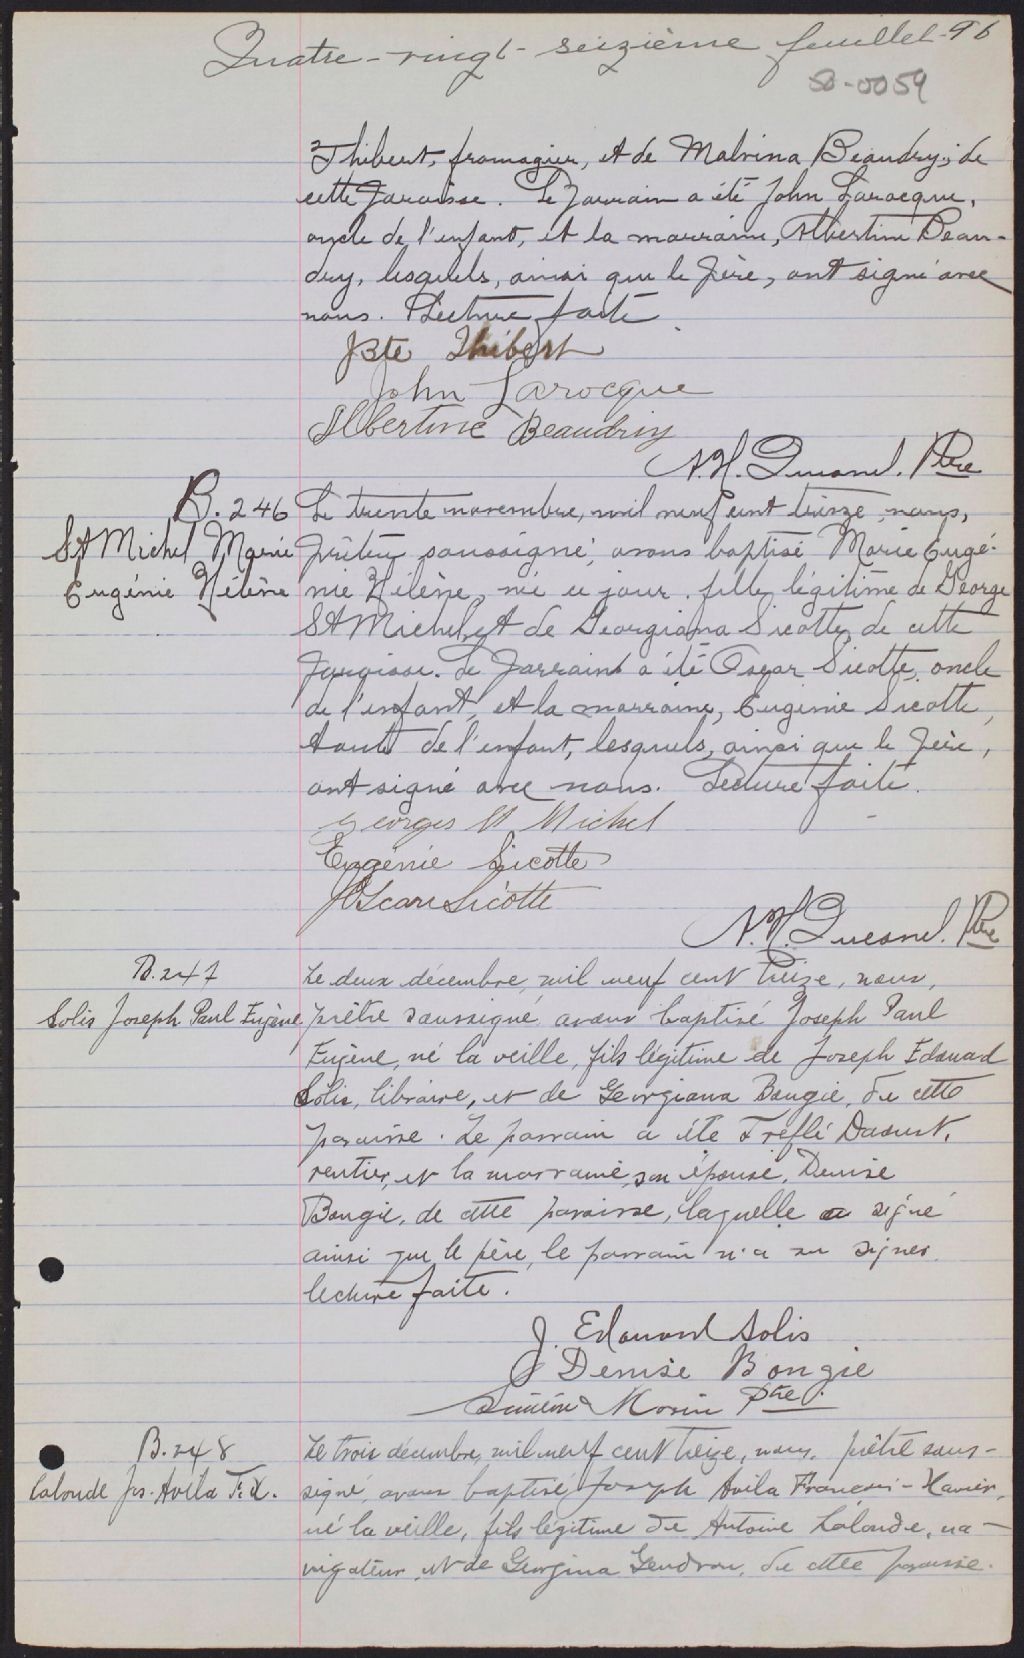 Quatre-vingt-seizième feuillet - 96
S0-0059
Thibert, fromagier, et de Malvina Beaudry, de
cette paroisse. Le parrain a été John Larocque,
oncle de l'enfant, et la marraine, Albertine Beau-
dry, lesquels, ainsi que le père, ont signé avec
nous. Lecture faite.
JBte Thibert
John Larocque
Albertine Beaudry
A.H. Ptre
B. 246
St Michel Marie
Eugénie Hélène
Le trente novembre, mil neuf cent treize, nous,
prêtre soussigné, avons baptisé Marie Eugé-
nie Hélène, née ce jour, fille légitime de George
St Michel, et de Georgiana Sicotte, de cette
paroisse. Le parrain a été Oscar Sicotte, oncle
de l'enfant, et la marraine, Eugénie Sicotte,
tante de l'enfant, lesquels, ainsi que le père,
ont signé avec nous. Lecture faite.
Georges St Michel
Eugénie Sicotte
JOscar Sicotte
A.H. Ptre
B. 247
Solis Joseph Paul Eugène
Le deux décembre, mil neuf cent treize, nous,
prêtre soussigné, avons baptisé Joseph Paul
Eugène, né la veille, fils légitime de Joseph Edouard
Solis, libraire, et de Georgiana Bougie, de cette
paroisse. Le parrain a été Trefflé Daoust,
rentier, et la marraine, son épouse, Denise
Bougie, de cette paroisse, laquelle a signé
ainsi que le père, le parrain n'a su signer.
lecture faite.
J. Edouard Solis
Denise Bougie
Siméon Morin Ptre.
B. 248
Lalonde Jos. Avila F.X.
Le trois décembre, mil neuf cent treize, nous, prêtre sous-
signé, avons baptisé Joseph Avila François-Xavier,
né la veille, fils légitime de Antoine Lalonde, na-
vigateur, et de Georgina Gendron, de cette paroisse.